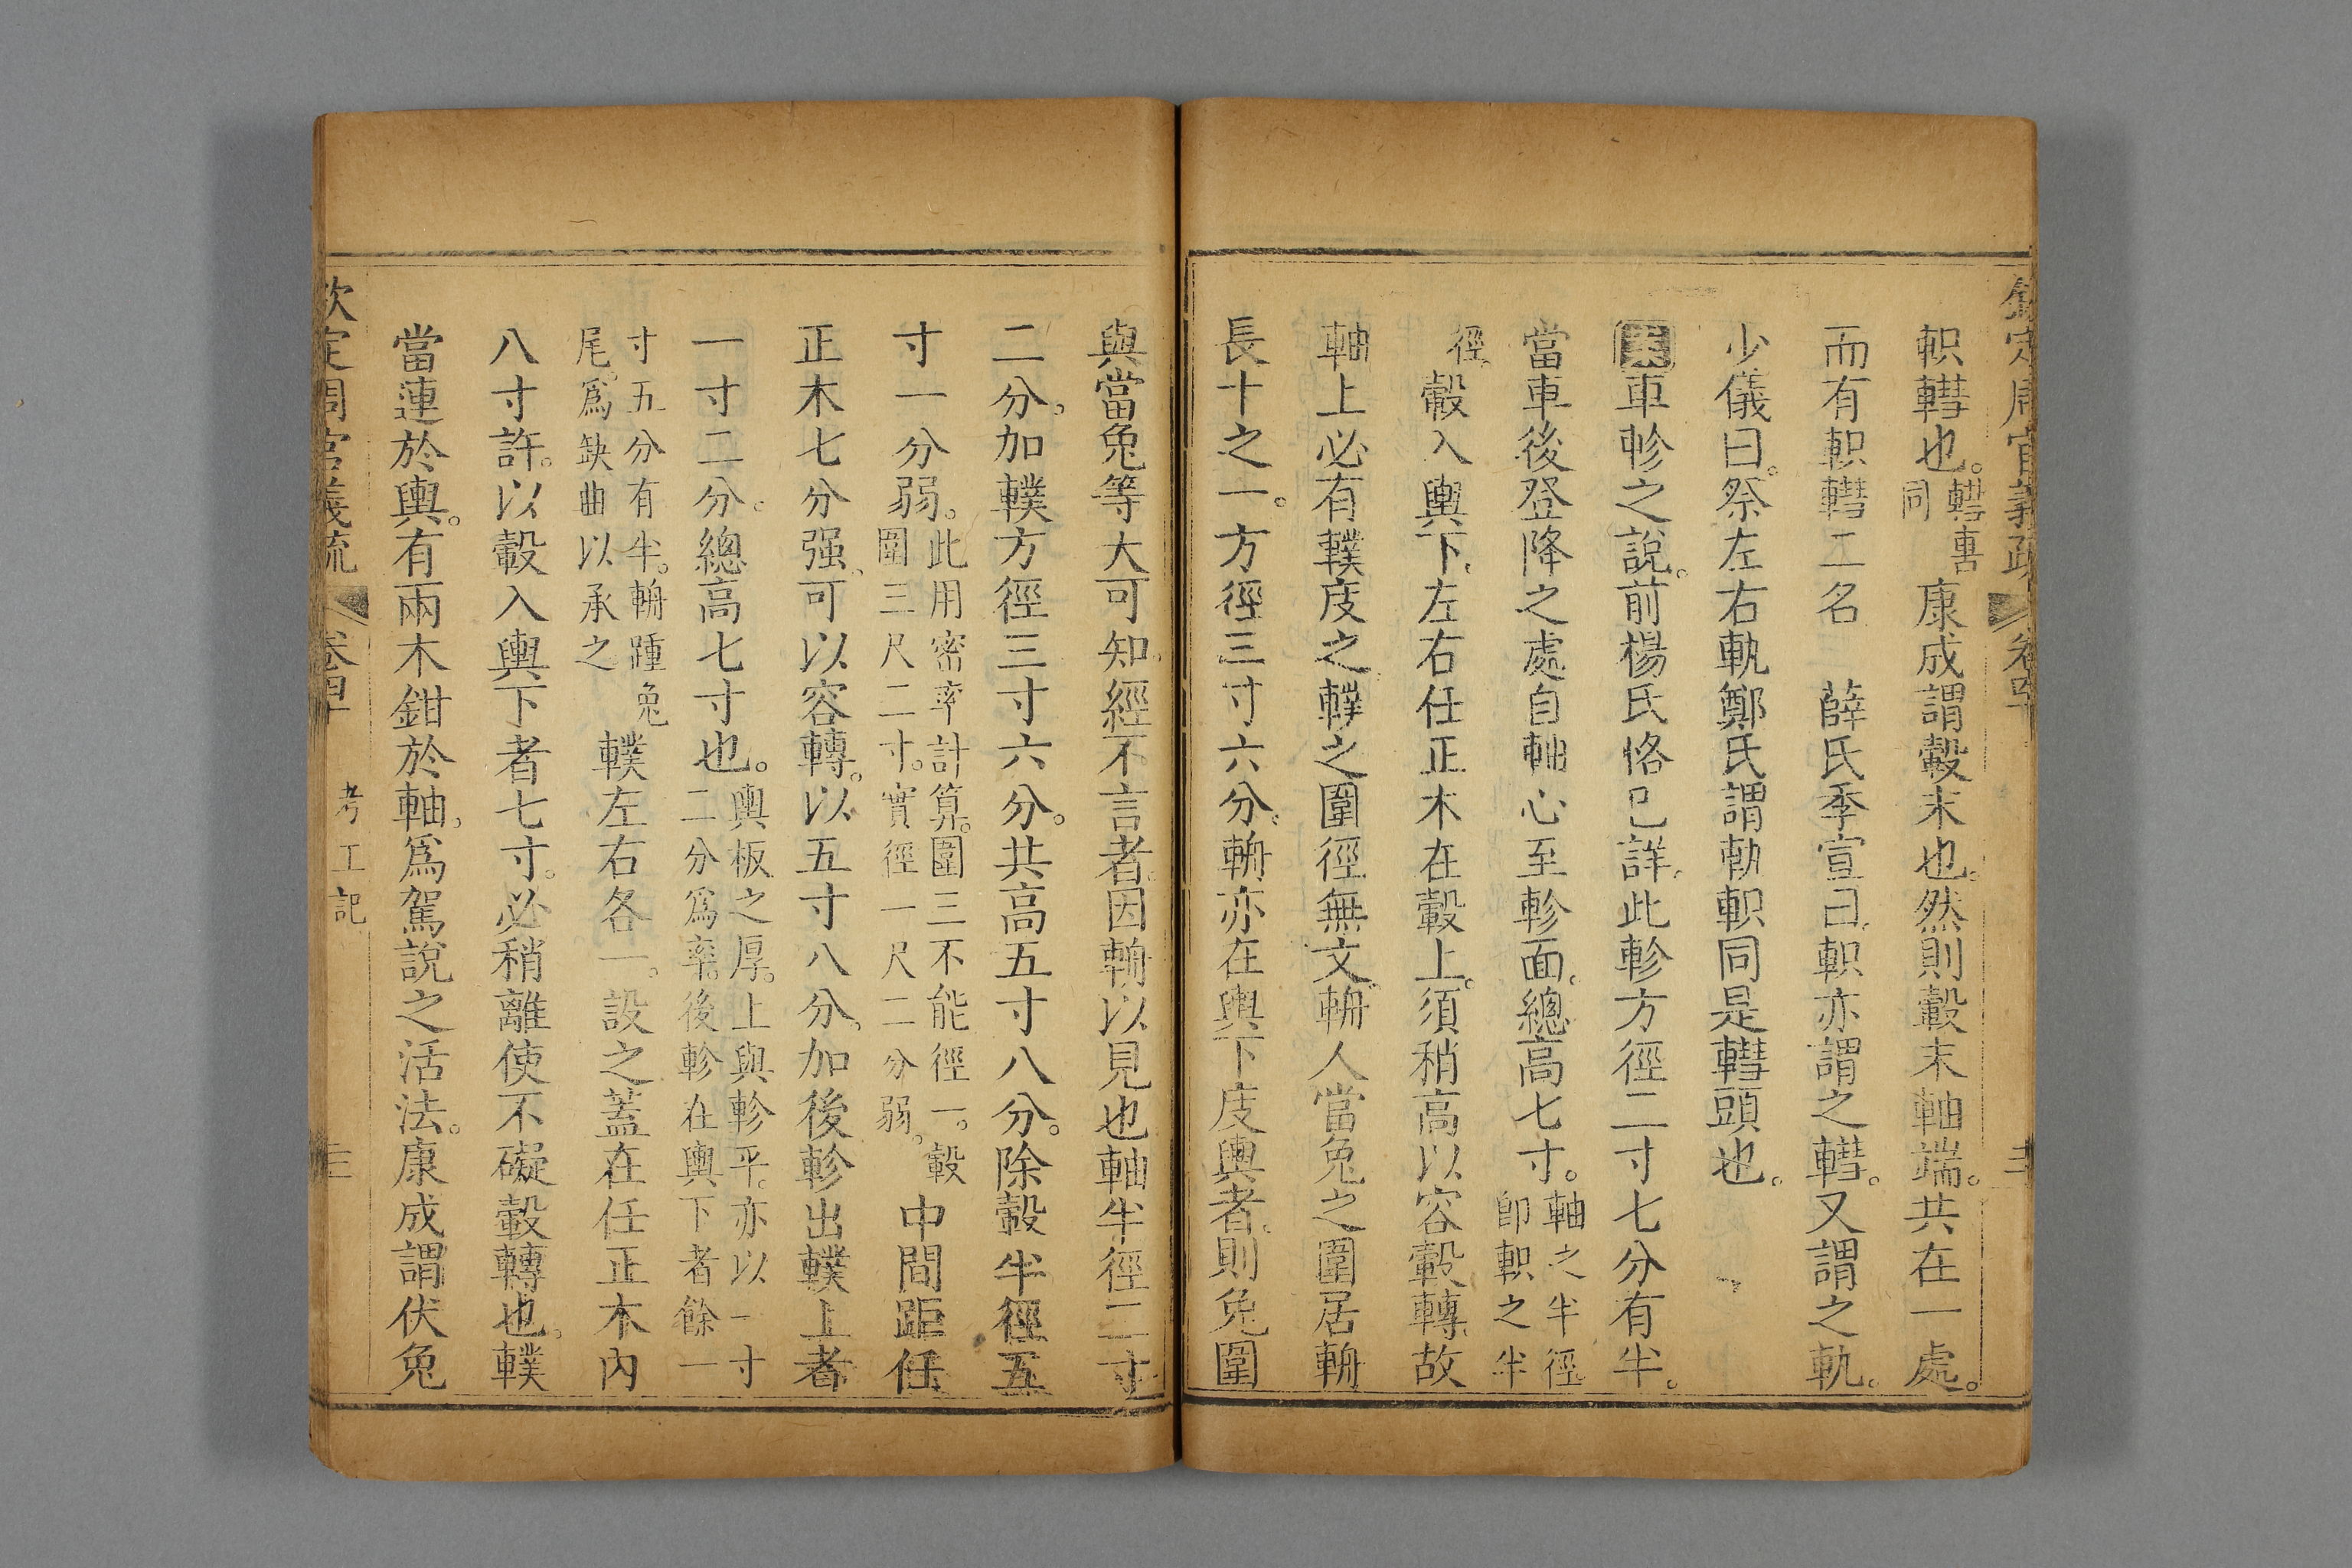 欽定周官義疏 卷四十
軹轊也。轊軎同 康成謂轂末也。然則轂末軸端。共在一處。
而有軹轊二名 薛氏季宣曰。軹亦謂之轊。又謂之軌。
少儀曰。祭左右軌。鄭氏謂軌軹同是轊頭也。
案車軫之說。前楊氏恪已詳。此軫方徑二寸七分有半。
當車後登降之處。自軸心至軫面。總高七寸。軸之半徑。卽軹之半
徑。轂入輿下。左右任正木在轂上。須稍高以容轂轉。故
軸上必有轐庋之。轐之圍徑無文。輈人當兔之圍。居輈
長十之一。方徑三寸六分。輈亦在輿下庋輿者。則兔圍
與當兔等大可知。經不言者。因輈以見也。軸半徑二寸
二分。加轐方徑三寸六分。共高五寸八分。除轂半徑五
寸一分弱。此用密率計算。圍三不能徑一。轂圍三尺二寸。實徑一尺二分弱。中間距任
正木七分强。可以容轉。以五寸八分。加後軫出轐上者
一寸二分。總高七寸也。輿板之厚。上與軫平。亦以一寸二分爲率。後軫在輿下者餘一
寸五分有半。輈踵兔尾。爲缺曲以承之 轐左右各一。設之蓋在任正木內
八寸許。以轂入輿下者七寸。必稍離使不礙轂轉也。轐
當連於輿。有兩木鉗於軸。爲駕說之活法。康成謂伏兔
欽定周官義疏 卷四十 考工記